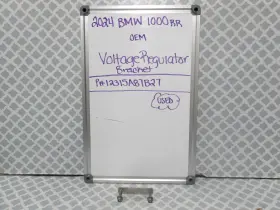 2024 BMW 1000RR
OEM
Voltage Regulator
Bracket
PN:12315AB7B27
USED